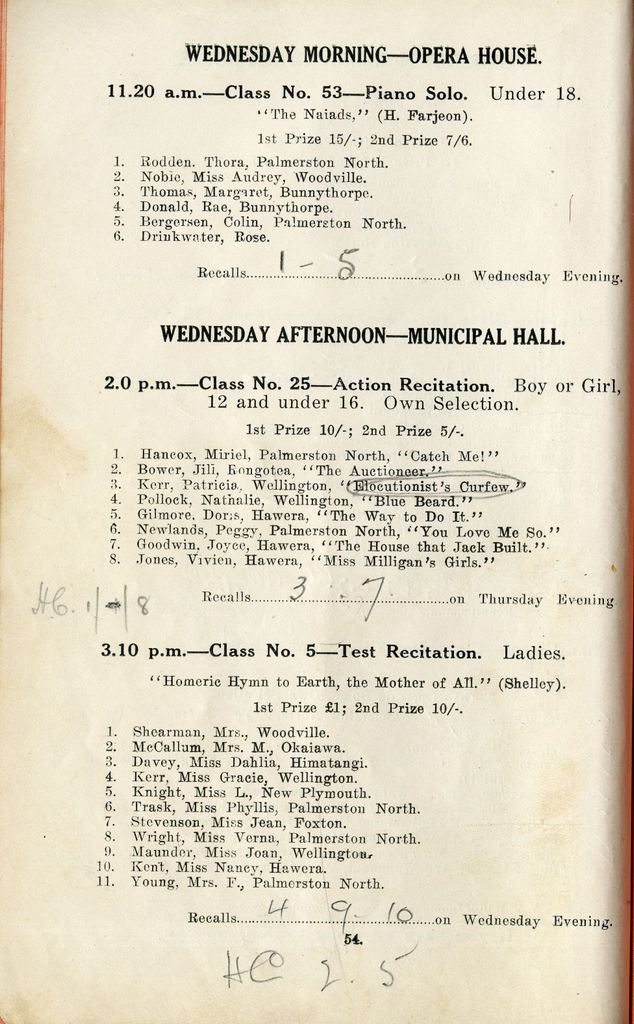 WEDNESDAY MORNING—OPERA HOUSE.
11.20 a.m.—Class No. 53—Piano Solo. Under 18.
"The Naiads," (H. Farjeon).
1st Prize 15/-; 2nd Prize 7/6.
1. Rodden, Thora, Palmerston North.
2. Noble, Miss Audrey, Woodville.
3. Thomas, Margaret, Bunnythorpe.
4. Donald, Rae, Bunnythorpe.
5. Bergersen, Colin, Palmerston North.
6. Drinkwater, Rose.
Recalls.......1 - 5.......on Wednesday Evening.
WEDNESDAY AFTERNOON—MUNICIPAL HALL.
2.0 p.m.—Class No. 25—Action Recitation. Boy or Girl,
12 and under 16. Own Selection.
1st Prize 10/-; 2nd Prize 5/-.
1. Hancox, Miriel, Palmerston North, "Catch Me!"
2. Bower, Jill, Rongotea, "The Auctioneer."
3. Kerr, Patricia, Wellington, "Elocutionist's Curfew."
4. Pollock, Nathalie, Wellington, "Blue Beard."
5. Gilmore, Doris, Hawera, "The Way to Do It."
6. Newlands, Peggy, Palmerston North, "You Love Me So."
7. Goodwin, Joyce, Hawera, "The House that Jack Built."
8. Jones, Vivien, Hawera, "Miss Milligan's Girls."
Recalls.......3 - 7.......on Thursday Evening
H.C. 1/ /8
3.10 p.m.—Class No. 5—Test Recitation. Ladies.
"Homeric Hymn to Earth, the Mother of All." (Shelley).
1st Prize £1; 2nd Prize 10/-.
1. Shearman, Mrs., Woodville.
2. McCallum, Mrs. M., Okaiawa.
3. Davey, Miss Dahlia, Himatangi.
4. Kerr, Miss Gracie, Wellington.
5. Knight, Miss L., New Plymouth.
6. Trask, Miss Phyllis, Palmerston North.
7. Stevenson, Miss Jean, Foxton.
8. Wright, Miss Verna, Palmerston North.
9. Maunder, Miss Joan, Wellington.
10. Kent, Miss Nancy, Hawera.
11. Young, Mrs. F., Palmerston North.
Recalls.......4 9 - 10.......on Wednesday Evening.
54.
HC 2. 5